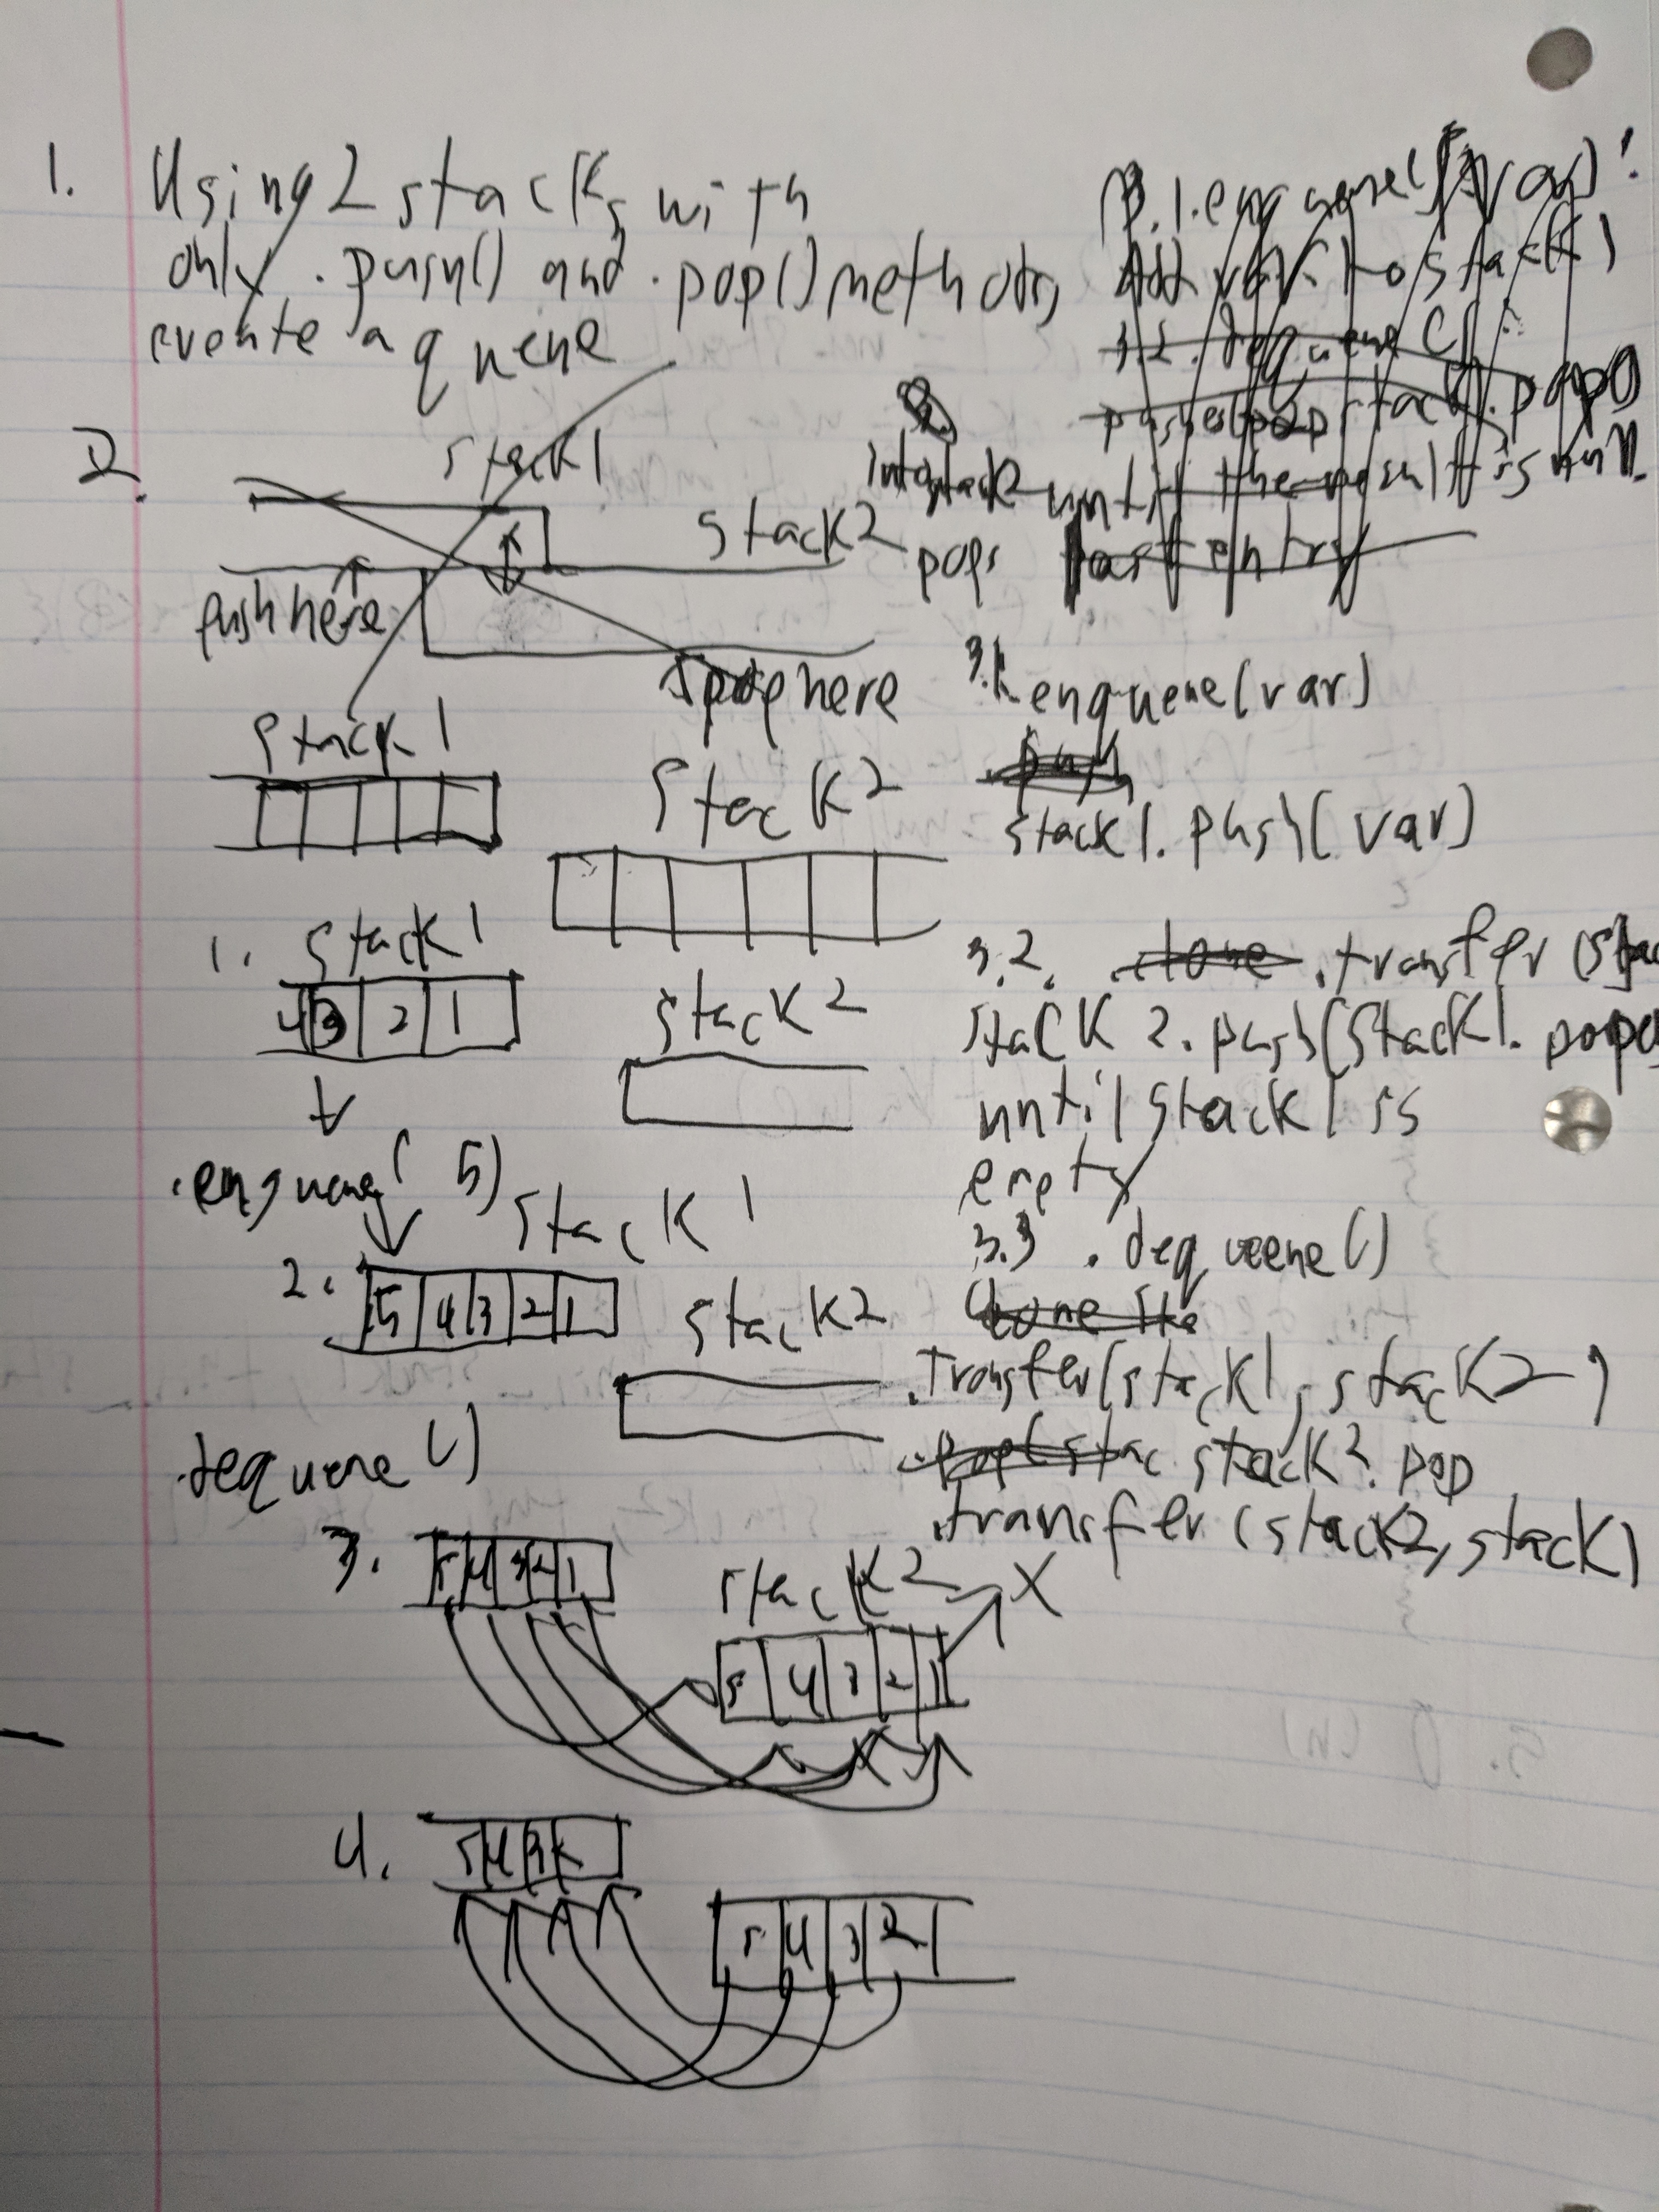 1. Using 2 stacks with
only .push() and .pop() methods
create a queue
2.
stack1
stack2
push here
pop here
stack 1
stack 2
1. stack 1
4 3 2 1
stack 2
.enqueue( 5)
stack 1
2. 5 4 3 2 1
stack2
.dequeue ()
3. 5 4 3 2 1
stack2 X
5 4 3 2 1
4. 5 4 3
5 4 3 2
.1.enqueue( var) :
Add var to stack1
3.2. dequeue () :
stack1.pop()
into stack2 until the result is null.
pops last entry
3.1. enqueue(var)
push
stack1.push(var)
3.2. .clone .transfer (stac
stack 2.push(stack1.pop(
until stack1 is
empty
3.3 .dequeue()
Clone sta
.Transfer(stack1, stack2)
.pop(stac stack2.pop
.transfer(stack2, stack1)
5. O(n)